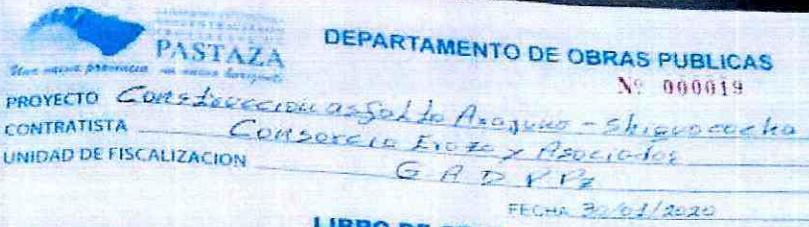 PASTAZA
DEPARTAMENTO DE OBRAS PUBLICAS
Nº 000019
PROYECTO Construccion asfalto Arajuno - Shiguacocha
CONTRATISTA Consorcio Erazo y Asociados
UNIDAD DE FISCALIZACION G A D P Pz
FECHA 30/01/2020
LIBRO DE